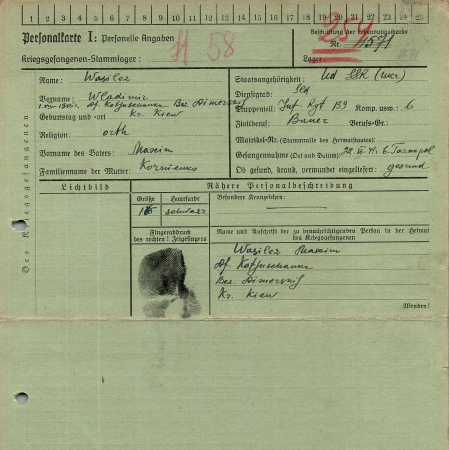 1 2 3 4 5 6 7 8 9 10 11 12 13 14 15 16 17 18 19 20 21 22 23 24 25
Personalkarte I: Personelle Angaben
Kriegsgefangenen-Stammlager:
58
Beschriftung der Erkennungsmarke
254
Nr. 11571
Lager:
Name: Wasilez
Vorname: Wladimir
Geburtstag und -ort Kr. Kiew
Religion: orth
Vorname des Vaters: Maxim
Familienname der Mutter: Kornienko
Staatsangehörigkeit: Ud SSR
Dienstgrad: Sld
Truppenteil: Inf Rgt 139 Komp. usw.: 6
Zivilberuf: Bauer Berufs-Gr.:
Matrikel-Nr. (Stammrolle des Heimatstaates):
Gefangennahme (Ort und Datum): 22.VI.41. b. Tarnopol
Ob gesund, krank, verwundet eingeliefert: gesund
Des Kriegsgefangenen
Lichtbild
Nähere Personalbeschreibung
Größe Haarfarbe
165 schwarz
Besondere Kennzeichen:
Fingerabdruck
des rechten! Zeigefingers
Name und Anschrift der zu benachrichtigenden Person in der Heimat
des Kriegsgefangenen
Wasilez Maxim
Df.
Bez. Dimerskij
Kr. Kiew
Wenden!